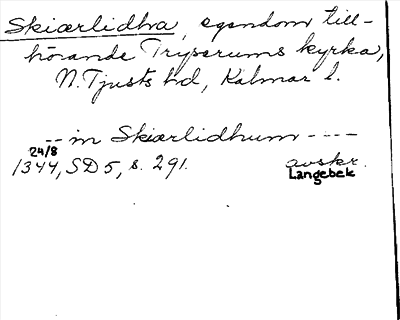 Skiærlidhra, egendom till-
hörande Tryserums kyrka,
N. Tjusts hd, Kalmar l.
-- in Skiærlidhum ----
24/8
1344, SD 5, s. 291. avskr.
Langebek